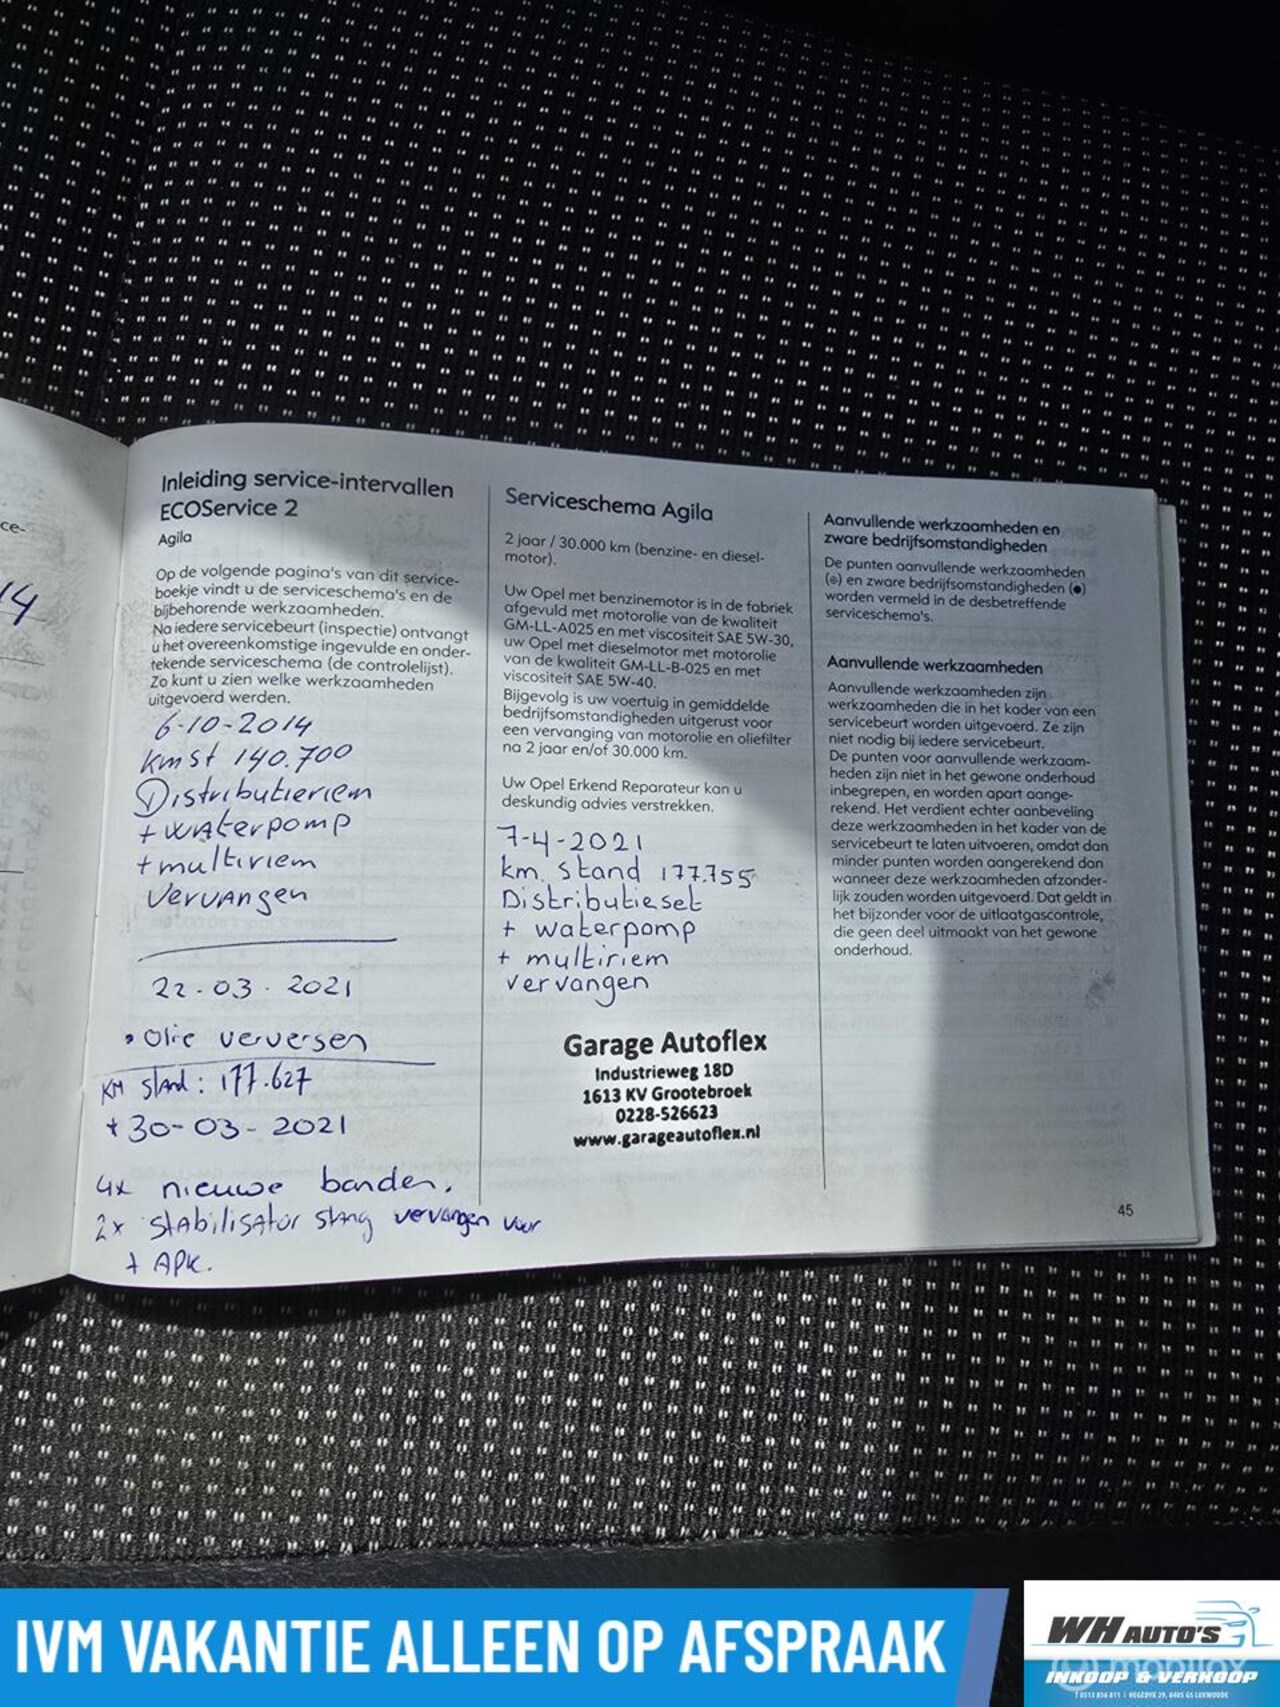 ce-
14
Inleiding service-intervallen
ECOService 2
Agila
Op de volgende pagina's van dit service-
boekje vindt u de serviceschema's en de
bijbehorende werkzaamheden.
Na iedere servicebeurt (inspectie) ontvangt
u het overeenkomstige ingevulde en onder-
tekende serviceschema (de controlelijst).
Zo kunt u zien welke werkzaamheden
uitgevoerd werden.
6-10-2014
kmst 140.700
Distributieriem
+ waterpomp
+ multiriem
Vervangen
22-03-2021
• Olie verversen
KM stand: 177.627
+ 30-03-2021
4x nieuwe banden.
2x stabilisator stang vervangen voor
+ APK.
Serviceschema Agila
2 jaar / 30.000 km (benzine- en diesel-
motor).
Uw Opel met benzinemotor is in de fabriek
afgevuld met motorolie van de kwaliteit
GM-LL-A025 en met viscositeit SAE 5W-30,
uw Opel met dieselmotor met motorolie
van de kwaliteit GM-LL-B-025 en met
viscositeit SAE 5W-40.
Bijgevolg is uw voertuig in gemiddelde
bedrijfsomstandigheden uitgerust voor
een vervanging van motorolie en oliefilter
na 2 jaar en/of 30.000 km.
Uw Opel Erkend Reparateur kan u
deskundig advies verstrekken.
7-4-2021
km. stand 177.755
Distributieset
+ waterpomp
+ multiriem
vervangen
Garage Autoflex
Industrieweg 18D
1613 KV Grootebroek
0228-526623
www.garageautoflex.nl
Aanvullende werkzaamheden en
zware bedrijfsomstandigheden
De punten aanvullende werkzaamheden
(⊕) en zware bedrijfsomstandigheden (●)
worden vermeld in de desbetreffende
serviceschema's.
Aanvullende werkzaamheden
Aanvullende werkzaamheden zijn
werkzaamheden die in het kader van een
servicebeurt worden uitgevoerd. Ze zijn
niet nodig bij iedere servicebeurt.
De punten voor aanvullende werkzaam-
heden zijn niet in het gewone onderhoud
inbegrepen, en worden apart aange-
rekend. Het verdient echter aanbeveling
deze werkzaamheden in het kader van de
servicebeurt te laten uitvoeren, omdat dan
minder punten worden aangerekend dan
wanneer deze werkzaamheden afzonder-
lijk zouden worden uitgevoerd. Dat geldt in
het bijzonder voor de uitlaatgascontrole,
die geen deel uitmaakt van het gewone
onderhoud.
45
IVM VAKANTIE ALLEEN OP AFSPRAAK
WH AUTO'S
INKOOP & VERKOOP
T 0513 856 811 | HEGEDYK 29, 8405 GS LUXWOUDE